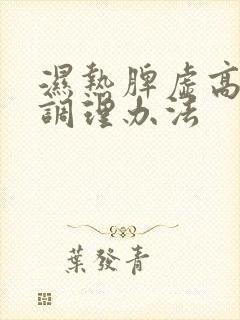 濕熱脾虛高
調理办法
葉發青